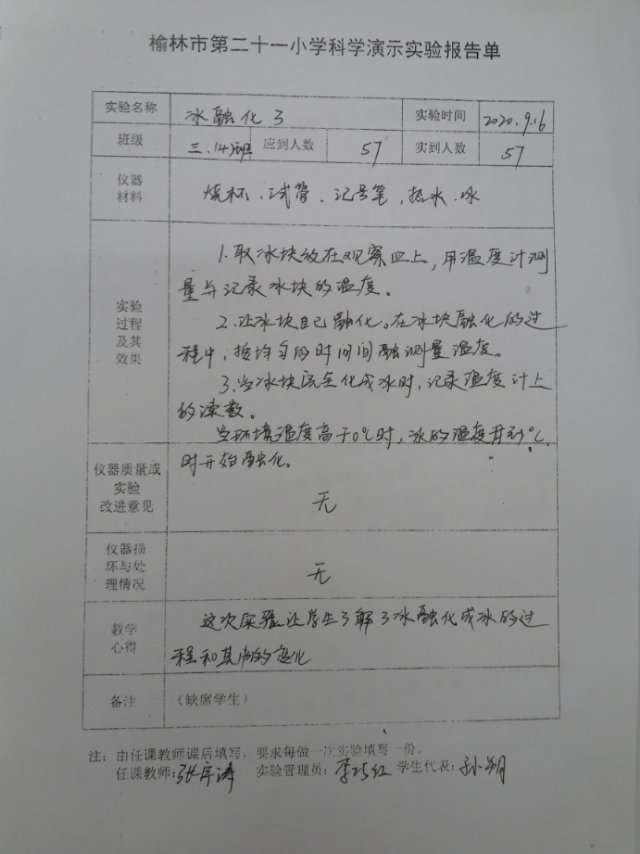 榆林市第二十一小学科学演示实验报告单
实验名称 冰融化了 实验时间 2020.9.16
班级 三.(4)班 应到人数 57 实到人数 57
仪器
材料
烧杯、试管、记号笔,热水.冰
实验
过程
及其
效果
1.取冰块放在观察皿上,用温度计测
量与记录冰块的温度。
2.让冰块自己融化。在冰块融化的过
程中,按均匀的时间间融测量温度。
3.当冰块完全化成冰时,记录温度计上
的读数。
当环境温度高于0℃时,冰的温度升到0℃
时开始融化。
仪器质量或
实验
改进意见
无
仪器损
坏与处
理情况
无
教学
心得
这次实验让学生了解了冰融化成冰的过
程和其中的变化
备注 (缺席学生)
注:由任课教师课后填写,要求每做一次实验填写一份。
任课教师: 实验管理员: 学生代表: